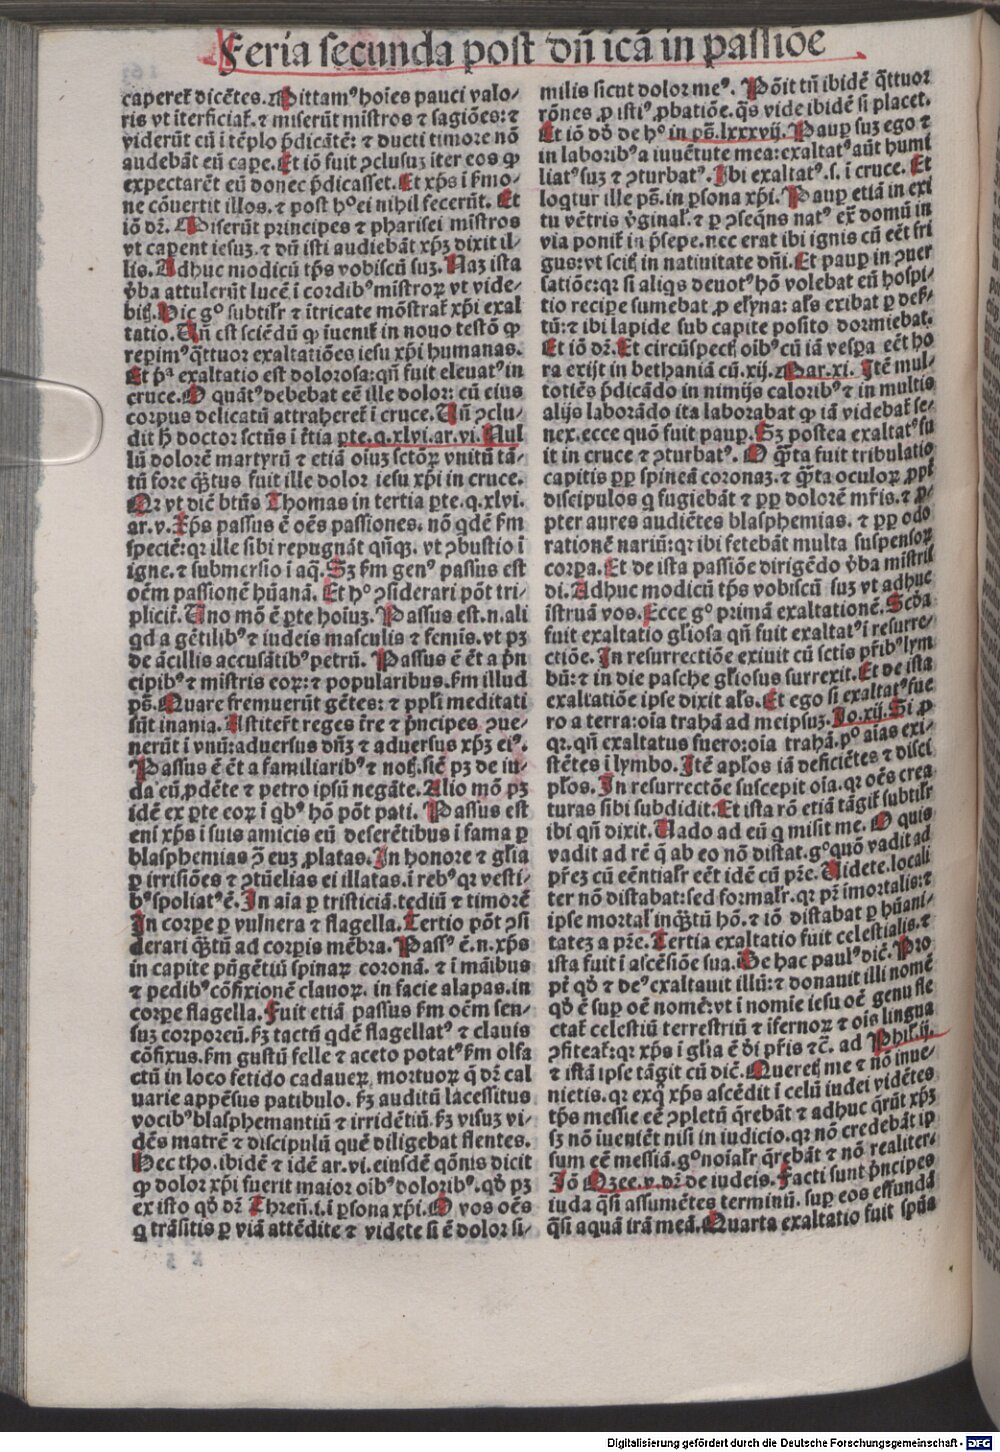 Feria secunda post dn̄icā in passiōe
caperet̄ dicētes. Mittamꝰ hoīes pauci valo/
ris vt īterficiāt̄. ⁊ miserūt mīstros ⁊ sagiōes: ⁊
viderūt eū ī tēplo p̄dicātē: ⁊ ducti timore nō
audebāt eū cape. Et iō fuit ↄclusuꝫ iter eos ꝙ
expectarēt eū donec p̄dicasset. Et xp̄s ī ẜmo/
ne cōuertit illos. ⁊ post hº ei nihil fecerūt. Et
iō dr̄. Miserūt principes ⁊ pharisei mīstros
vt capent iesuꝫ. ⁊ dū isti audiebāt xp̄ꝫ dixit il/
lis. Adhuc modicū tp̄s vobiscū suꝫ. Naꝫ ista
v̄ba attulerūt lucē ī cordibꝰ mīstroꝝ vt vide/
bitꝭ. Hic gº subtilr̄ ⁊ ītricate mōstrat̄ xp̄i exal
tatio. Vn̄ est sciēdū ꝙ īuenit̄ in nouo testō ꝙ
repimꝰ q̄ttuor exaltatiōes iesu xp̄i humanas.
Et p̄ª exaltatio est dolorosa: qn̄ fuit eleuatꝰ in
cruce. O quātꝰ debebat eē ille dolor: cū eius
corpus delicatū attraheret̄ ī cruce. Vn̄ ↄclu/
dit h̄ doctor sctūs ī t̄tia ꝑte. q. xlvi. ar. vi. Nul
lū dolorē martyrū ⁊ etiā oīuꝫ sctōꝝ vnitū tā/
tū fore q̄ꝫtus fuit ille dolor iesu xp̄i in cruce.
Qꝛ vt dicē btūs Thomas in tertia ꝑte. q. xlvi.
ar. v. Xp̄s passus ē oēs passiones. nō qdē ẜm
speciē: qꝛ ille sibi repugnāt qn̄qꝫ. vt ↄbustio ī
igne. ⁊ submersio ī aq̄. Sꝫ ẜm genꝰ passus est
oēm passionē hūanā. Et hº ↄsiderari pōt tri/
plicit̄. Uno mō ē ꝑte hoīuꝫ. Passus est. n. ali
qd a gētilibꝰ ⁊ iudeis masculis ⁊ femīs. vt pꝫ
de ācillis accusātibꝰ petrū. Passus ē ēt a p̄n
cipibꝰ ⁊ mīstris eoꝝ: ⁊ popularibus. ẜm illud
pṡ. Quare fremuerūt gētes: ⁊ ppl̄i meditati
sūt inania. Astiterūt reges tr̄e ⁊ p̄ncipes ↄue/
nerūt ī vnū: aduersus dn̄ꝫ ⁊ aduersus xp̄ꝫ eiꝰ.
Passus ē ēt a familiaribꝰ ⁊ notꝭ. sic̄ pꝫ de iu/
da eū ꝓdēte ⁊ petro ipsū negāte. Alio mō pꝫ
idē ex ꝑte eoꝝ ī qbꝰ hō pōt pati. Passus est
eni xp̄s ī suis amicis eū deserētibus ī fama ꝑ
blasphemias ↄ̄ euꝫ ꝓlatas. In honore ⁊ gl̄ia
ꝑ irrisiōes ⁊ ↄtūelias ei illatas. ī rebꝰ qꝛ vesti/
bꝰ spoliatꝰ ē. In aīa ꝑ tristiciā. tediū ⁊ timorē
In corpe ꝑ vulnera ⁊ flagella. Tertio pōt ↄsi
derari q̄ꝫtū ad corpis mēbra. Passꝰ ē. n. xp̄s
in capite pūgētiū spinaꝝ coronā. ⁊ ī māibus
⁊ pedibꝰ cōfixionē clauoꝝ. in facie alapas. in
corpe flagella. Fuit etiā passus ẜm oēm sen/
suꝫ corporeū. ẜꝫ tactū qdē flagellatꝰ ⁊ clauis
cōfixus. ẜm gustū felle ⁊ aceto potatꝰ ẜm olfa
ctū in loco fetido cadaueꝝ mortuoꝝ q̄ dr̄ cal
uarie appēsus patibulo. ẜꝫ auditū lacessitus
vocibꝰ blasphemantiū ⁊ irridētiū. ẜꝫ visuꝫ vi/
dēs matrē ⁊ discipulū quē diligebat flentes.
Hec tho. ibidē ⁊ idē ar. vi. eiusdē qōnis dicit
ꝙ dolor xp̄i fuerit maior oībꝰ doloribꝰ. qḋ pꝫ
ex isto qḋ dr̄ Thren̄. i. ī ꝑsona xp̄i. O vos oēs
q trāsitis ꝑ viā attēdite ⁊ videte si ē dolor si/
milis sicut dolor meꝰ. Pōit tn̄ ibidē q̄ttuor
rōnes ꝓ istiꝰ ꝓbatiōe. q̄s vide ibidē si placet.
Et iō dḋ de hº in pṡ. lxxxvij. Paup suꝫ ego ⁊
in laboribꝰ a iuuētute mea: exaltatꝰ aūt humi
liatꝰ suꝫ ⁊ ↄturbatꝰ. Ibi exaltatꝰ. s. ī cruce. Et
loqtur ille pṡ. in ꝑsona xp̄i. Paup etiā in exi
tu vētris v̄ginal̄. ⁊ ꝑ ↄseqn̄s natꝰ ex̄ domū in
via ponit̄ in p̄sepe. nec erat ibi ignis cū eēt fri
gus: vt scitꝭ in natiuitate dn̄i. Et paup in ↄuer
satiōe: qꝛ si aliqs deuotꝰ hō volebat eū hospi/
tio recipe sumebat ꝓ elyna: al̄s exibat ꝑ deẜ/
tū: ⁊ ibi lapide sub capite posito dormiebat.
Et iō dr̄. Et circūspectꝭ oībꝰ cū iā vespa eēt ho
ra exijt in bethaniā cū. xij. Mar. xi. Itē mul/
totiēs p̄dicādo in nimijs caloribꝰ ⁊ in multis
alijs laborādo ita laborabat ꝙ iā videbat̄ se/
nex. ecce quō fuit paup. Sꝫ postea exaltatꝰ fu
it in cruce ⁊ ↄturbatꝰ. O q̄ꝫta fuit tribulatio
capitis ꝑp spineā coronaꝫ. ⁊ q̄ꝫta oculoꝝ ꝓpt
discipulos q fugiebāt ⁊ ꝑp dolorē mr̄is. ⁊ ꝓ/
pter aures audiētes blasphemias. ⁊ ꝑp odo
rationē nariū: qꝛ ibi fetebāt multa suspensoꝝ
corpa. Et de ista passiōe dirigēdo v̄ba mīstris
di. Adhuc modicū tp̄s vobiscū suꝫ vt adhuc
īstruā vos. Ecce gº primā exaltationē. Scḋa
fuit exaltatio gl̄iosa qn̄ fuit exaltatꝰ ī resurre/
ctiōe. In resurrectiōe exiuit cū sctīs pr̄ibꝰ lym
bū: ⁊ in die pasche gl̄iosus surrexit. Et de ista
exaltatiōe ipse dixit al̄s. Et ego si exaltatꝰ fue
ro a terra: oīa trahā ad meipsuꝫ. Io. xij. Si ꝓ
qꝛ. qn̄ exaltatus fuero: oīa trahā. pº aīas exi/
stētes ī lymbo. Itē apl̄os iā deficiētes ⁊ disci
pl̄os. In resurrectōe suscepit oīa. qꝛ oēs crea
turas sibi subdidit. Et ista rō etiā tāgit̄ subtilr̄
ibi qn̄ dixit. Vado ad eū q misit me. O quis
vadit ad rē q̄ ab eo nō distat. gº quō vadit ad
pr̄eꝫ cū eēntialr̄ eēt idē cū pr̄e. Videte. locali
ter nō distabat: sed formalr̄. qꝛ pr̄ īmortalis: ⁊
ipse mortal̄ inq̄ꝫtū hō. ⁊ iō distabat ꝑ hūani/
tateꝫ a pr̄e. Tertia exaltatio fuit celestialis. ⁊
ista fuit ī ascēsiōe sua. De hac paulꝰ dic̄. Pro
pt̄ qḋ ⁊ deꝰ exaltauit illū: ⁊ donauit illi nomē
qḋ ē suꝑ oē nomē: vt ī nomīe iesu oē genu fle
ctat̄ celestiū terrestriū ⁊ īfernoꝝ ⁊ oīs lingua
ↄfiteat̄: qꝛ xp̄s ī gl̄ia ē dī pr̄is ⁊c̄. ad Phil. ij.
⁊ istā ipse tāgit cū dic̄. Queretꝭ me ⁊ nō inue/
nietis. qꝛ exq xp̄s ascēdit ī celū iudei vidētes
tp̄s messie eē ↄpletū q̄rebāt ⁊ adhuc q̄rūt xp̄ꝫ
sꝫ nō īueniēt nisi in iudicio. qꝛ nō credebāt ip
sum eē messiā. gº noīalr̄ q̄rebāt ⁊ nō realiter.
Iō Oꝫee. v. dr̄ de iudeis. Facti sunt p̄ncipes
iuda q̄si assumētes terminū. suꝑ eos effundā
q̄si aquā irā meā. Quarta exaltatio fuit spūa
Digitalisierung gefördert durch die Deutsche Forschungsgemeinschaft - DFG